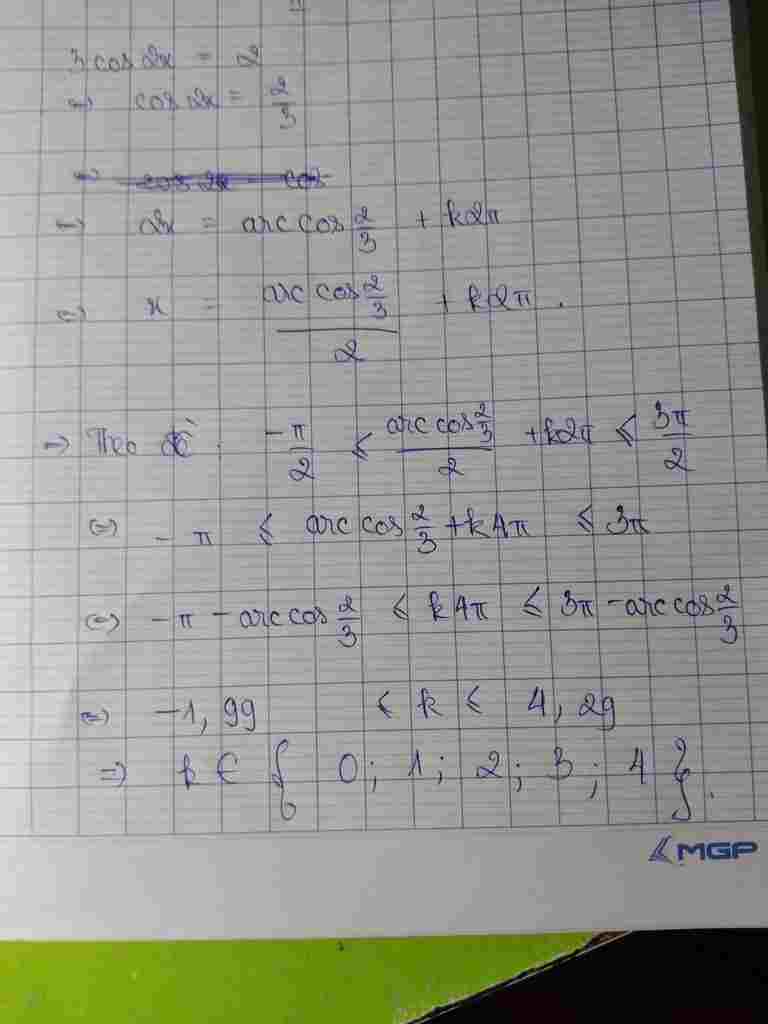 3 cos 2x = 2
=> cos 2x = 2/3
=> cos 2x = cos
=> 2x = arc cos 2/3 + k2π
<=> x = arc cos 2/3 / 2 + k2π.
=> Theo đề: -π/2 ≤ arc cos 2/3 / 2 + k2π ≤ 3π/2
<=> -π ≤ arc cos 2/3 + k4π ≤ 3π
<=> -π - arc cos 2/3 ≤ k4π ≤ 3π - arc cos 2/3
<=> -1,99 ≤ k ≤ 4,29
=> k ∈ { 0; 1; 2; 3; 4 }.
MGP